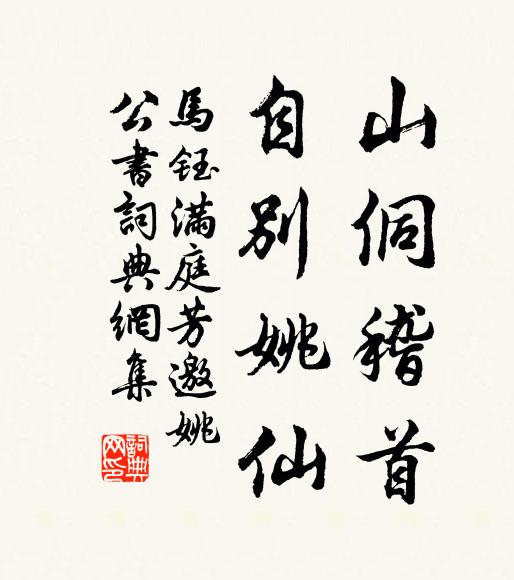 山侗稽首
自別姚仙
馬鈺滿庭芳邀姚
公書詞典網集
詞典网印